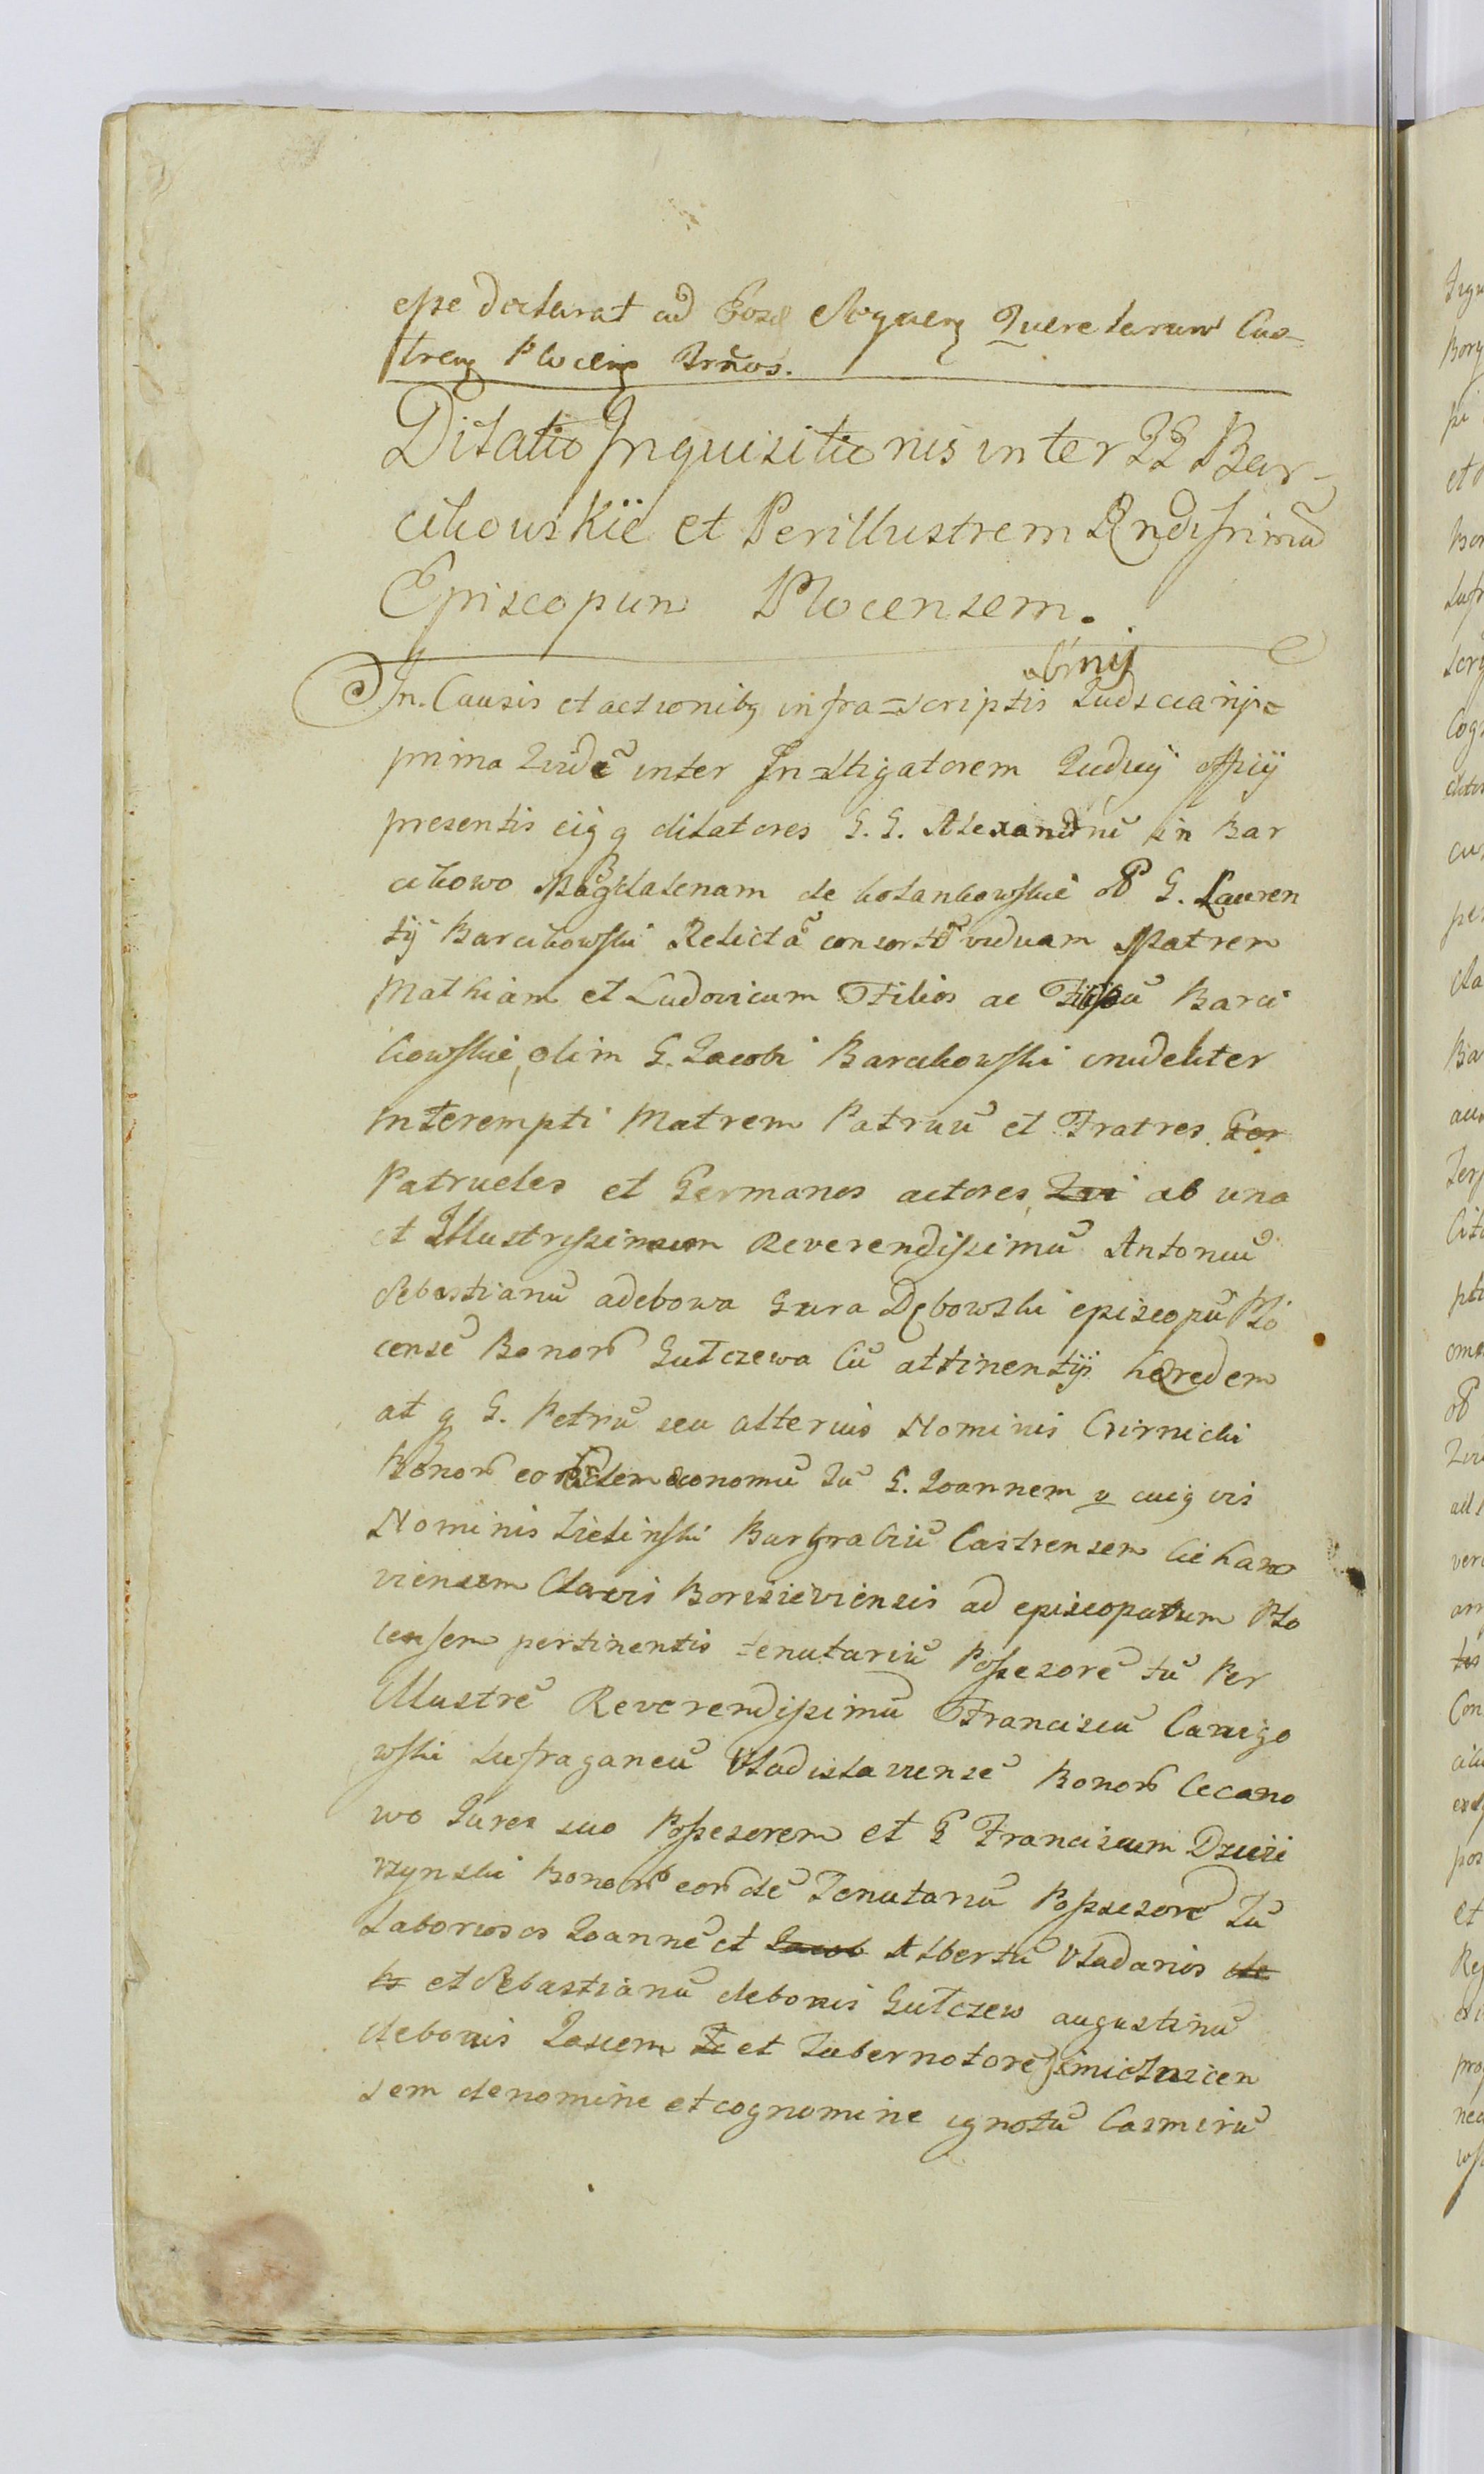 esse declarat ad Eosd Sequenz Querelarum Cas-
trenz Plocenz Trnos.
Dilatio Inquisitionis inter GG Bar-
cikowskie et Perillustrem Rndissimu
Episcopum Plocensem.
In Causis et actionibz infra=scriptis Judiciarij=
prima quidē inter Instigatorem Judicij Officij
presentis eigq dilatores G. G. Alexandrū in Bar
cikowo Magdalenam de kolankowskie olī G. Lauren
tij Barcikowski Relictā consortē viduam Matrem
Mathiam et Ludovicum Filios ac Barci
kowskie, olim G. Jacobi Barcikowski crudeliter
interempti Matrem Patruū et Fratres
Patrueles et Germanos actores, ab una
et Illustrissimum Reverendissimū Antoniū
Sebastianū adebowa Gura Dębowski episcopū Plo
censē Bonorū Gułczewa Cū attinentijs hæredem
at q G. Petrū seu alterius Nominis Czirnicki
Bonorū eorūdem œconomū Tū G. Joannem v cuigvis
Nominis Zielinski Burgrabiū Castrensem Ciehano
viensem Clavis Borzsieviensis ad episcopatum Plo
censem pertinentis tenutariū Possesorē tū Per
Illustrē Reverendissimū Franciscū Canigo
wski Sufraganeū Vladislaviensē Bonorū Cecano
wo Jures suo Possesorem et G Franciscum Dzieii
rzynski Bonorū eorūdē Tenutariū Possesorē Tū
Laboriosos Joannē et Jacob Albertū Vladarios de
et Sebastianū debonis Gułczew augustinū
debonis Jasiem et Gubernotorē
sem denomine et cognomine ignotū Casmirū